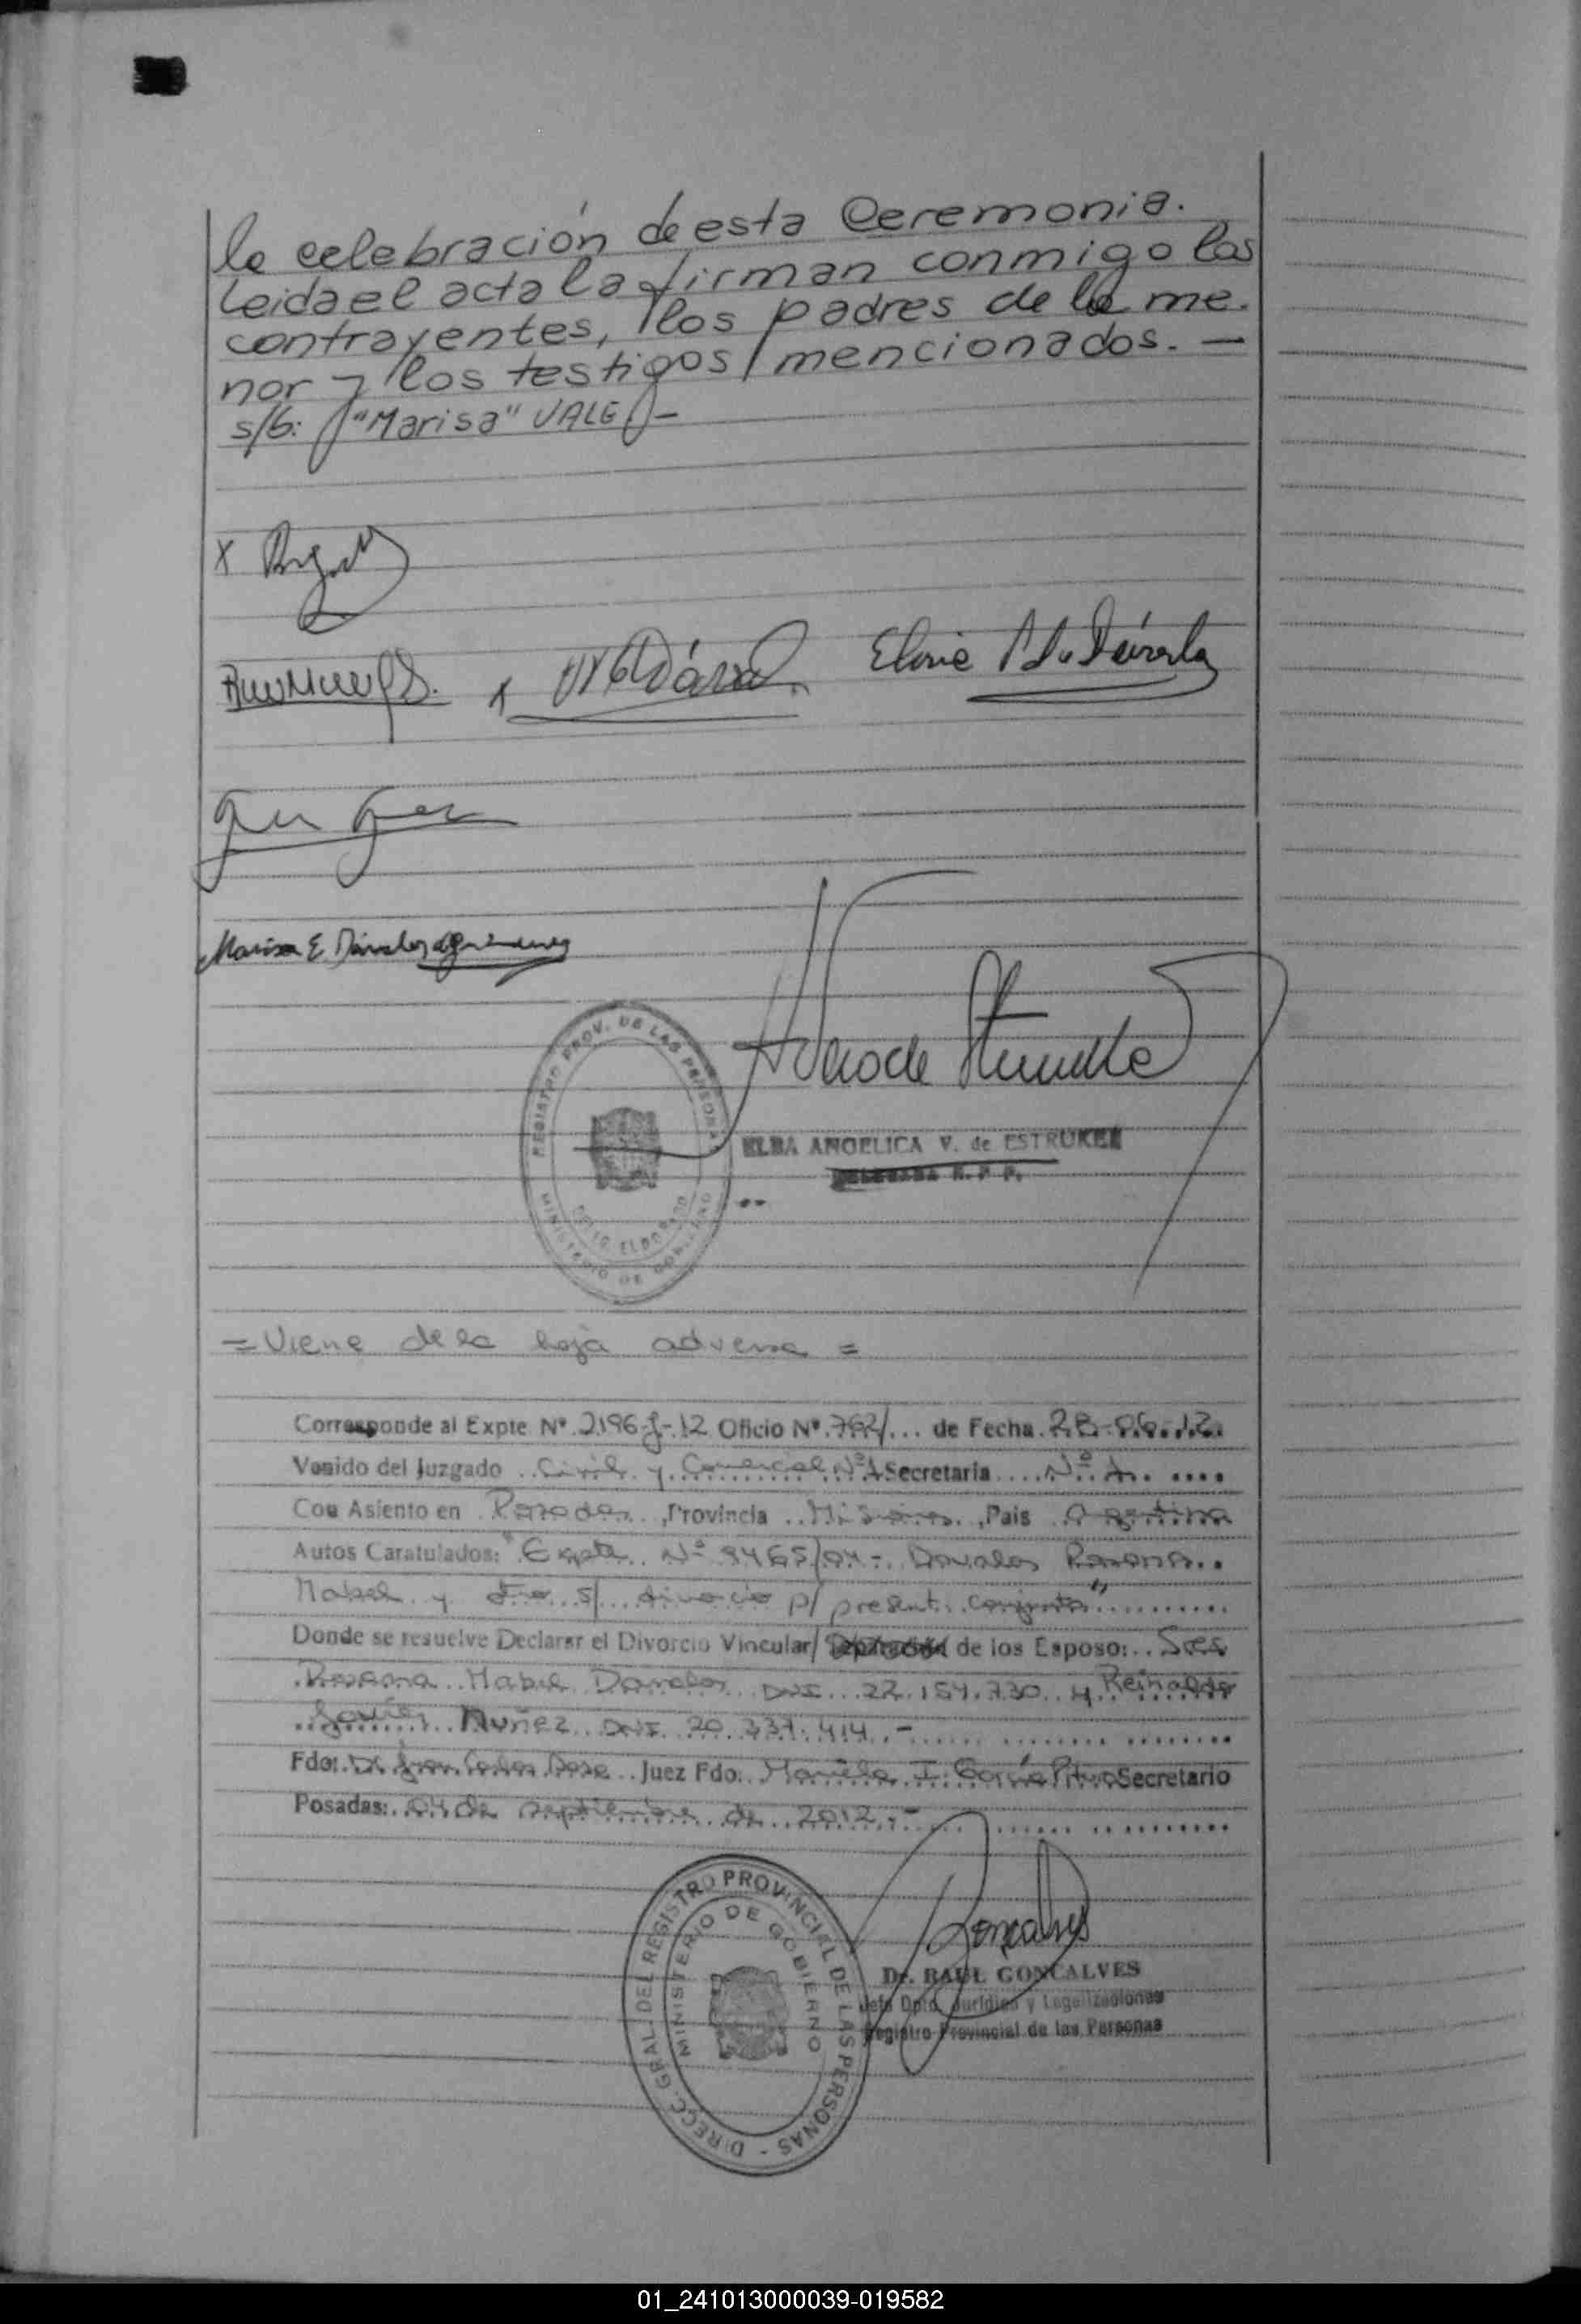 la celebración de esta Ceremonia.
Leida el acta la firman conmigo los
contrayentes, los padres de la me-
nor y los testigos mencionados. —
s/b: "Marisa" VALE -
X
X
Marisa E. Dávalos de
REGISTRO PROV. DE LAS PERSONAS
MINISTERIO DE GOBIERNO
ELDORADO
ELBA ANGELICA V. de ESTRUKEL
DELEGADA R. P. P.
= Viene de la hoja adversa =
Corresponde al Expte Nº 2196-J-12 Oficio Nº 762/... de Fecha 28-06-12
Venido del Juzgado Civil y Comercial Nº 1 Secretaria Nº 1
Con Asiento en Posadas, Provincia Misiones, Pais Argentina
Autos Caratulados: "Expte Nº 9465/04 - Davalos Roxana
Mabel y otro s/ divorcio p/ present. conjunta"
Donde se resuelve Declarar el Divorcio Vincular/ de los Esposo: Sres
Roxana Mabel Davalos DNI 22.154.730 y Reinaldo
Javier Nuñez DNI 20.337.414.-
Fdo: Dr. Juan Carlos Juez Fdo: Mariela I. García Secretario
Posadas: 04 de septiembre de 2012.-
DIRECC. GRAL. DEL REGISTRO PROVINCIAL DE LAS PERSONAS -
MINISTERIO DE GOBIERNO
Dr. RAUL GONCALVES
Jefe Dpto. Jurídico y Legalizaciones
Registro Provincial de las Personas
01_241013000039-019582